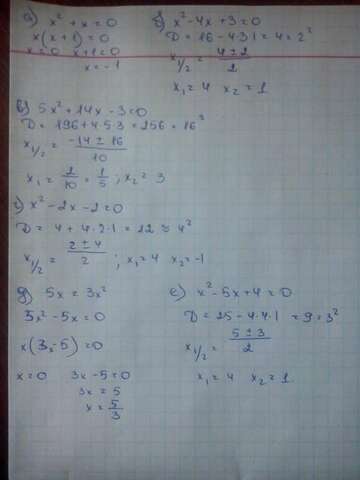 а) x² + x = 0
x(x+1) = 0
x=0 x+1=0
x = -1
б) x² - 4x + 3 = 0
D = 16 - 4·3·1 = 4 = 2²
x1/2 = (4 ± 2)/2
x1 = 4 x2 = 1
в) 5x² + 14x - 3 = 0
D = 196 + 4·5·3 = 256 = 16²
x1/2 = (-14 ± 16)/10
x1 = 2/10 = 1/5 ; x2 = 3
г) x² - 2x - 2 = 0
D = 4 + 4·2·1 = 12 ≈ 4²
x1/2 = (2 ± 4)/2 ; x1 = 4 x2 = -1
д) 5x = 3x²
3x² - 5x = 0
x(3x - 5) = 0
x = 0 3x - 5 = 0
3x = 5
x = 5/3
е) x² - 5x + 4 = 0
D = 25 - 4·4·1 = 9 = 3²
x1/2 = (5 ± 3)/2
x1 = 4 x2 = 1